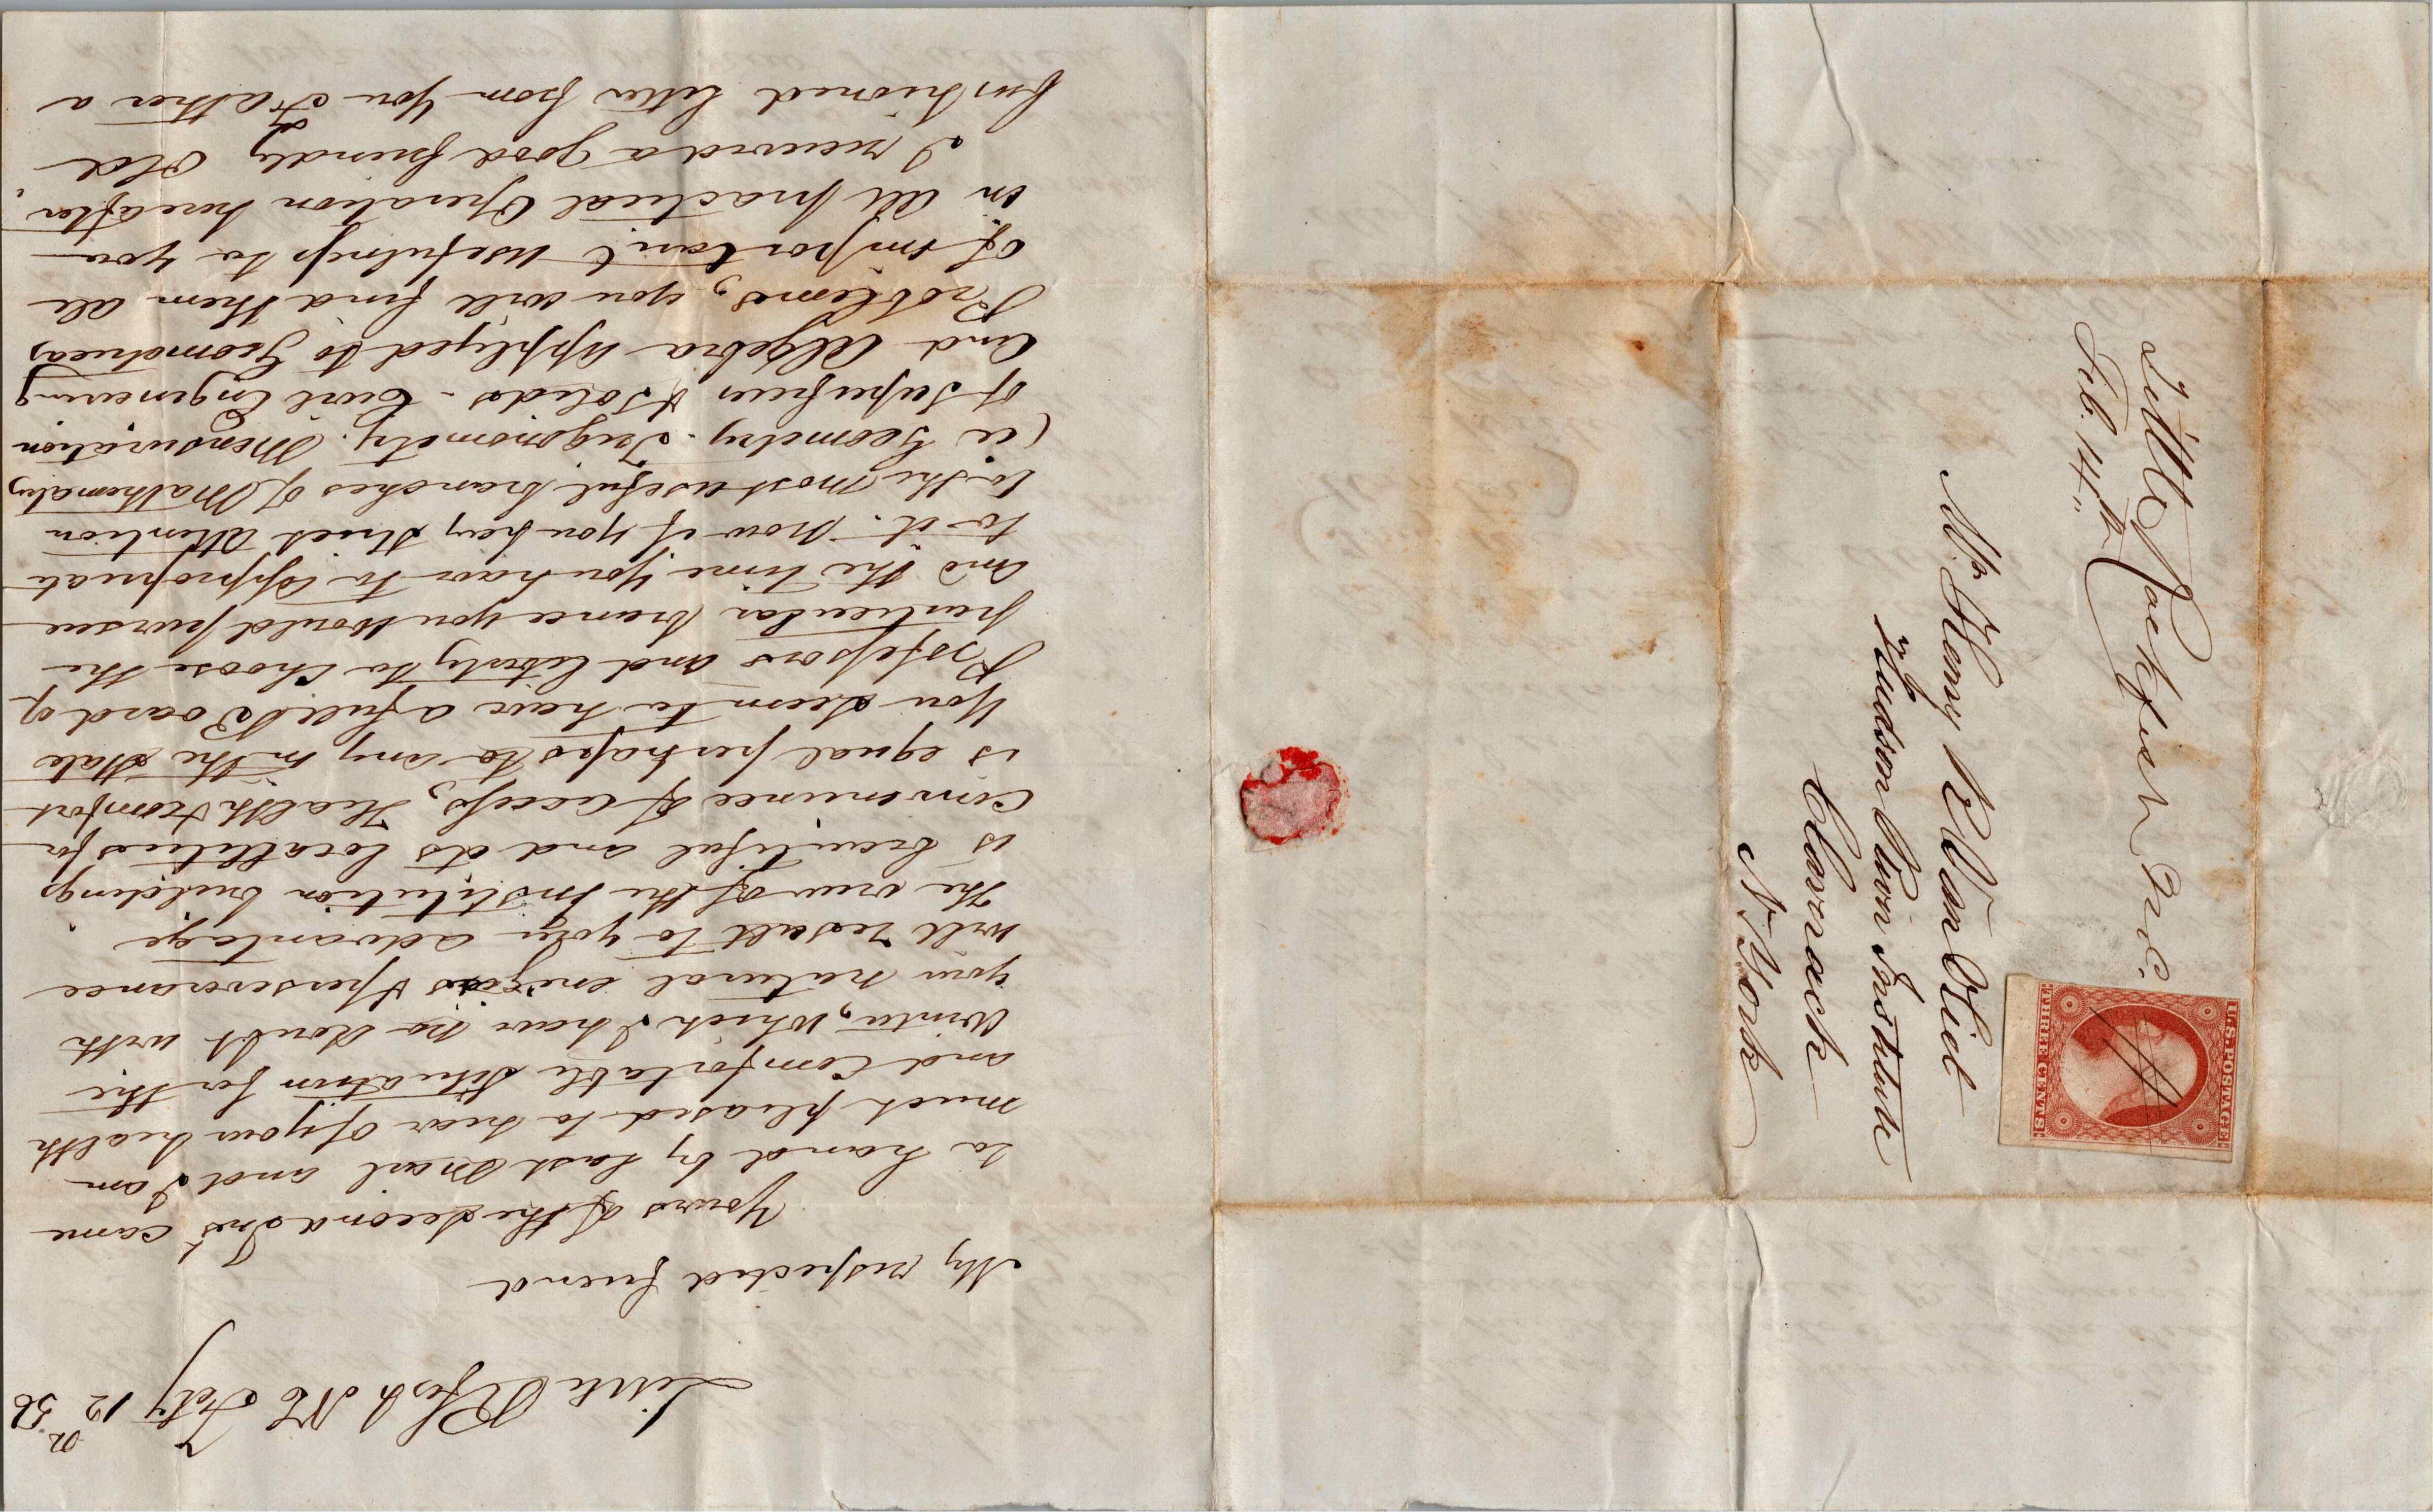 Little R. fish NC Feby 12th 56
My respected friend
Yours of the second Inst came
to hand by last Mail and I am
much pleased to hear of your health
and Comfortable Situation for the
Winter, which I have no doubt with
your natural energies & perseverance
will result to your advantage
The view of the Institution buildings
is beautiful and its locallities for
Convenience of Access, Health & comfort
is equal perhaps to any in the State
You seem to have a full Board of
Professors and liberty to Choose the
particular brance you would pursue
and the time you have to appropriate
to it. Now if you pay strict Attention
to the most useful branches of Mathematics
(ie Geometry. Trigonometry. Mensuration
of Superfices & Solids - Civil Engineering
And Algebra Applyed to Geometrical
Problems, you will find them all
of important usefulness to you
in all practical Operation hereafter.
I received a good friendly Old
fashioned letter from your Father a
Little Rockfish N.C.
Feb. 14th
Mr. Henry R Van Vliet
Hudson River Institute
Claverack
N. York
U.S. POSTAGE
THREE CENTS